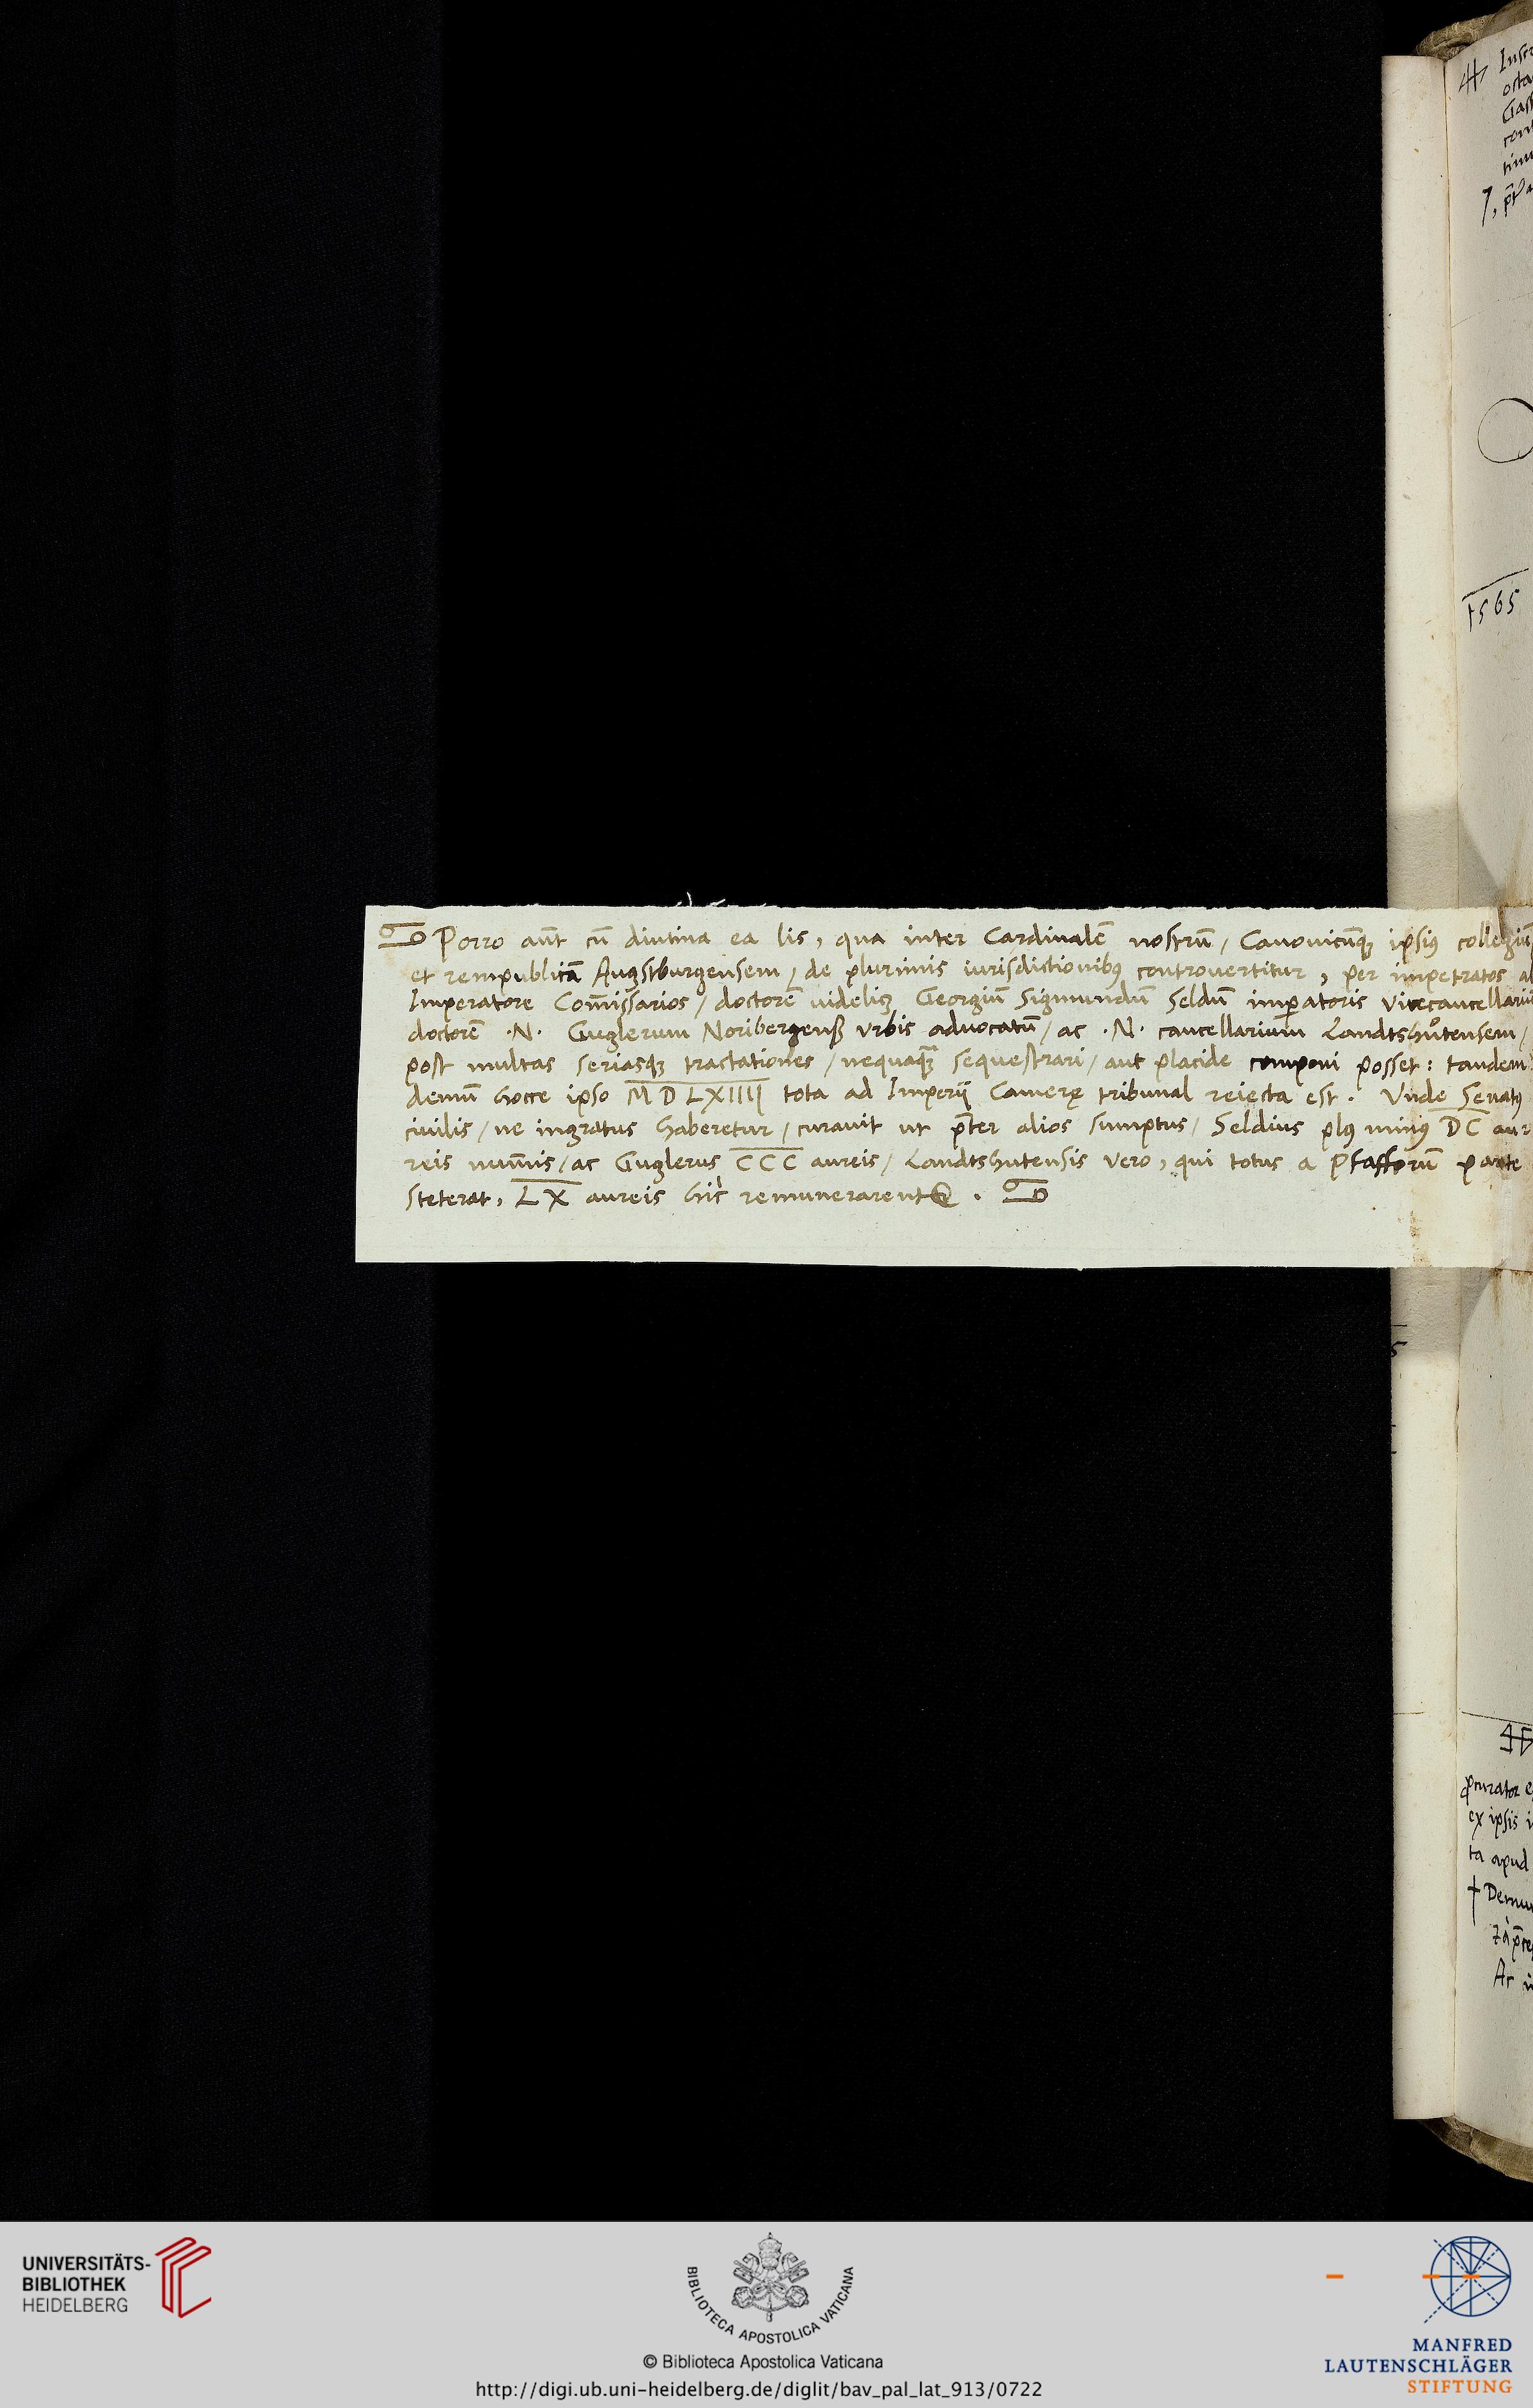 Porro aūt cū diutina ea lis, qua inter Cardinalē nostrū, Canonicūq̨ ipsiꝰ collegiū
et rempublicā Augstburgensem, de plurimis iurisdictionibꝰ controvertitur, per impetratos a
Imperatore Com̄issarios, doctorē videlic̨ Georgiū Sigmundū Seldū imꝑatoris vicecancellariū
doctorē .N. Guglerum Noribergenß vrbis advocatū, ac .N. cancellarium Landtshůtensem,
post multas seriasq̨ tractationes, nequaq̄ sequestrari, aut placide componi posset: tandem
demū hocce ipso MDLXIIII tota ad Imperij Camerę tribunal reiecta est. Unde Senatꝰ
civilis, ne ingratus haberetur, curavit ut p̄ter alios sumptus, Seldius plꝰ minꝰ DC au-
reis num̄is, ac Guglerus CCC aureis, Landtshutensis vero, qui totus a Pfafforū parte
steterat, LX aureis hic remunerarent.
1565
ꝓcurator e
ex ipsis i
ta apud
† Demu
Ac
UNIVERSITÄTS-
BIBLIOTHEK
HEIDELBERG
BIBLIOTECA APOSTOLICA VATICANA
© Biblioteca Apostolica Vaticana
http://digi.ub.uni-heidelberg.de/diglit/bav_pal_lat_913/0722
MANFRED
LAUTENSCHLÄGER
STIFTUNG